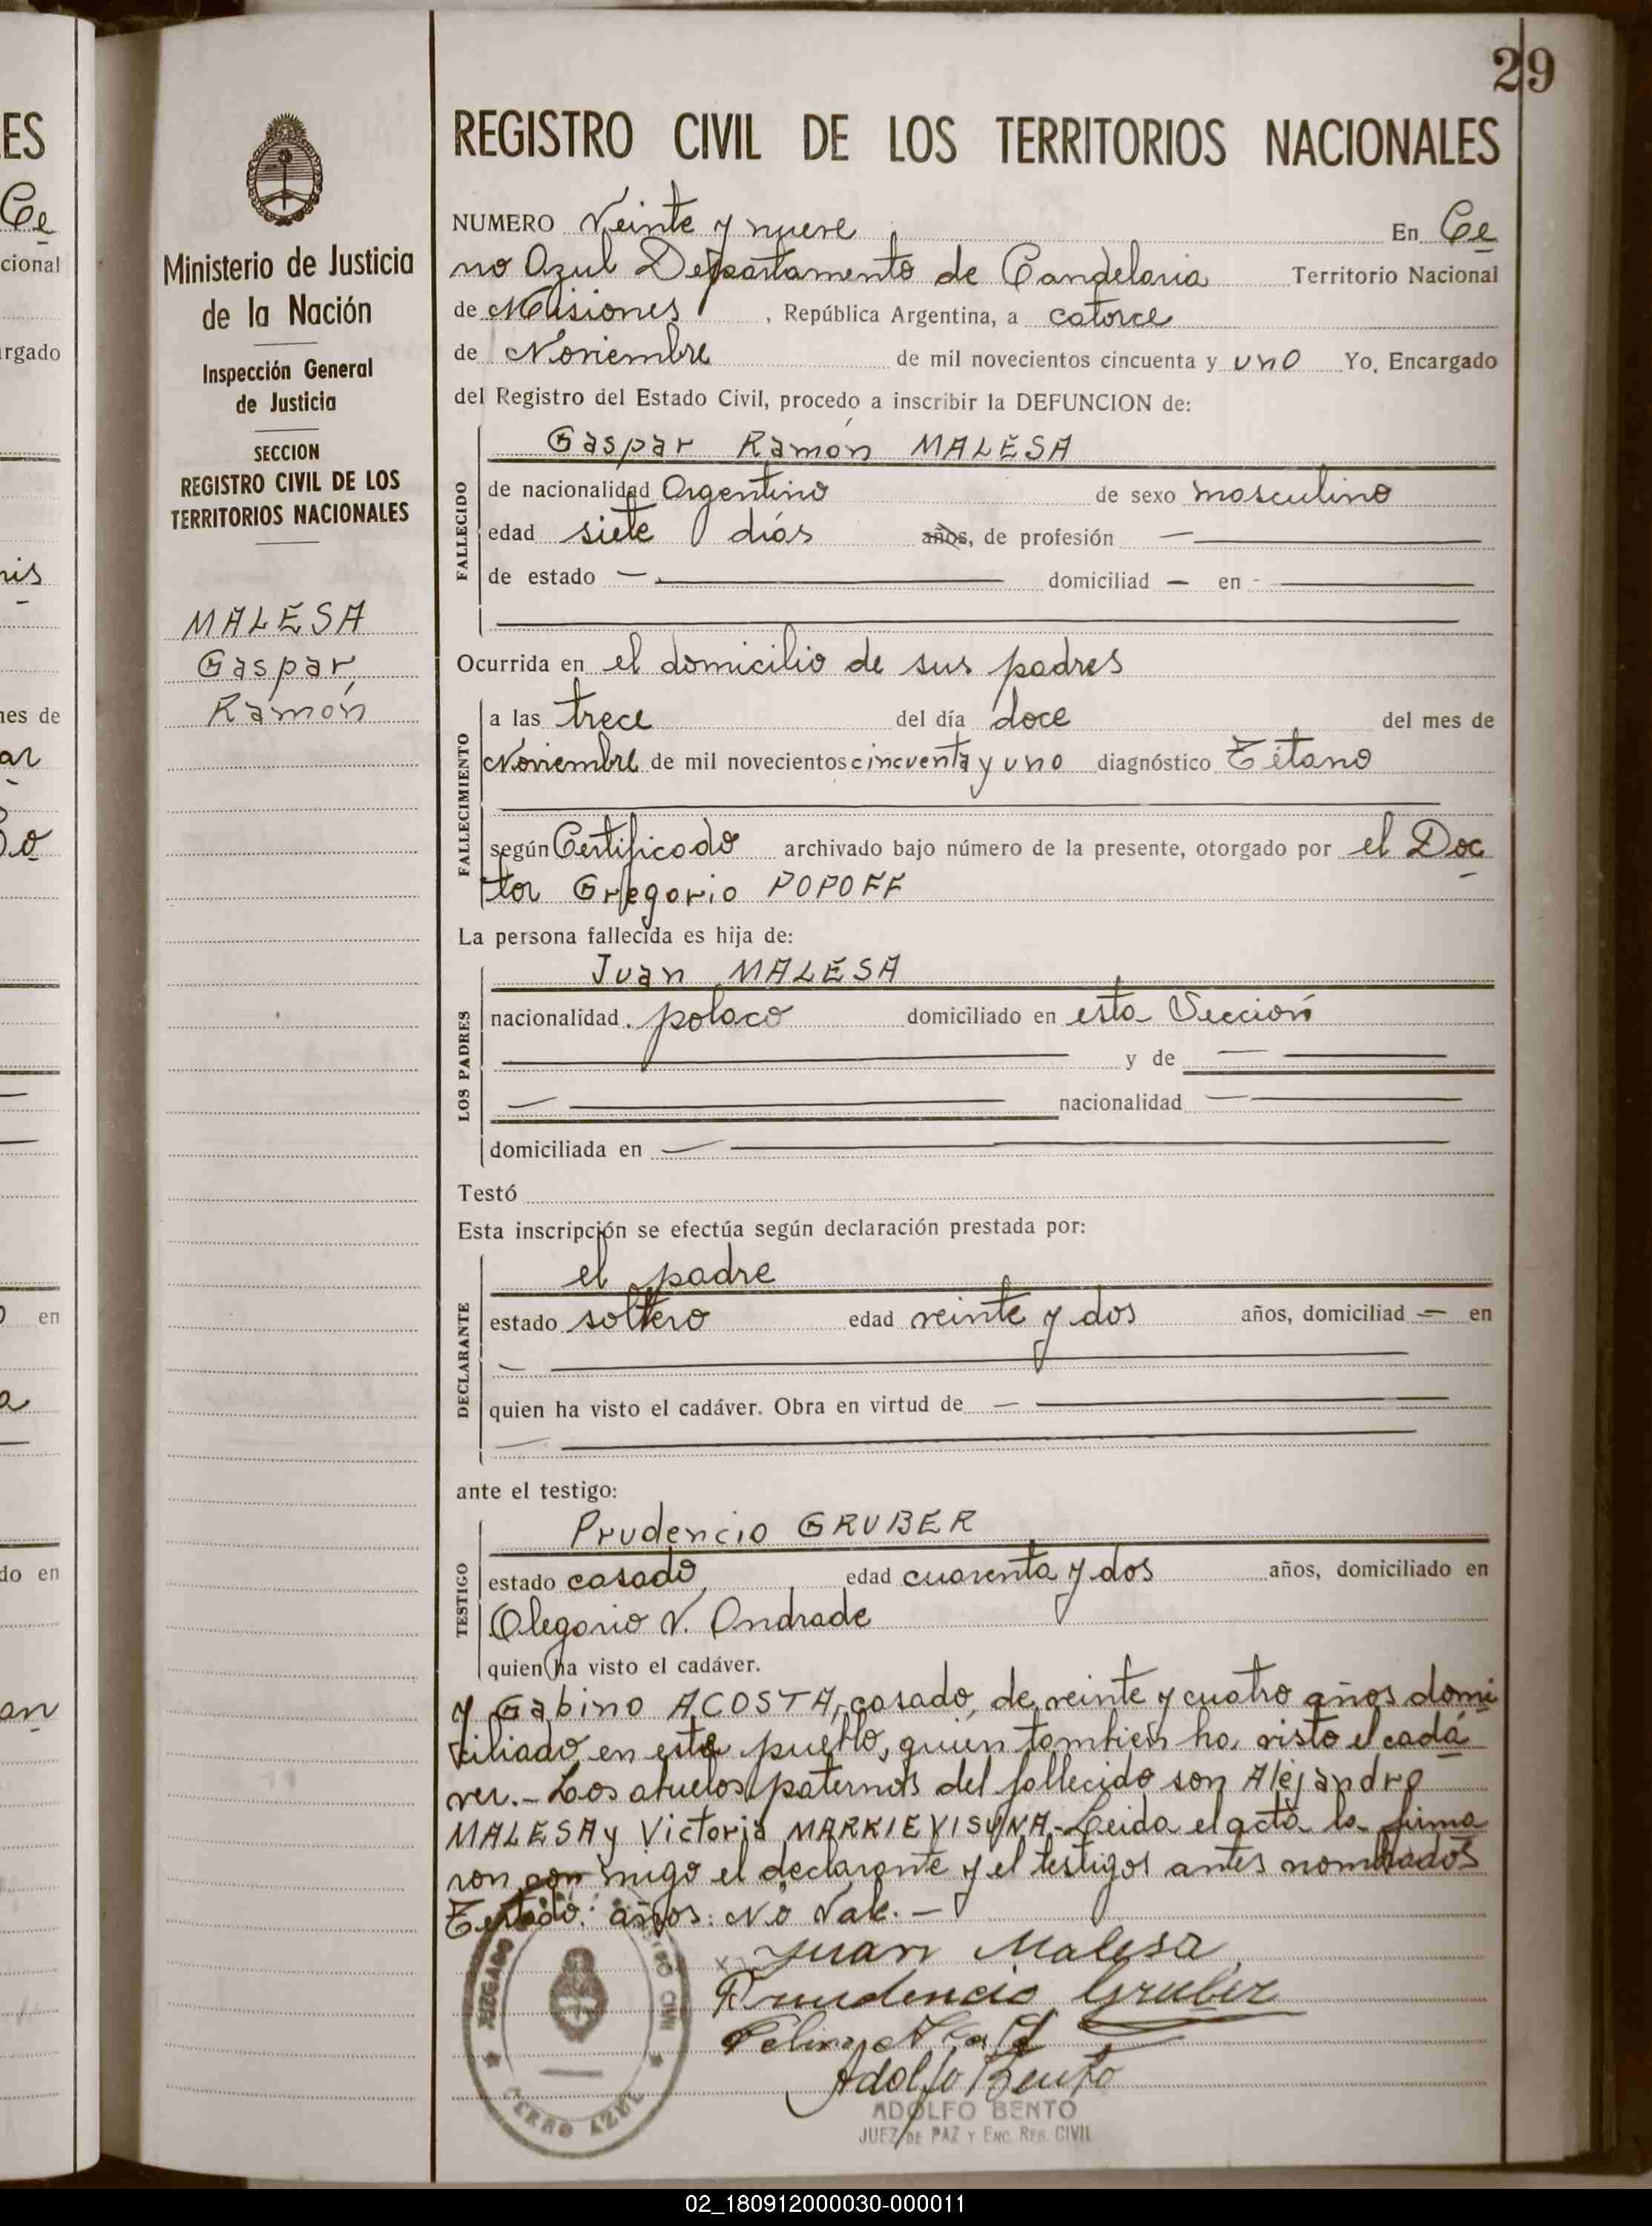 29
REGISTRO CIVIL DE LOS TERRITORIOS NACIONALES
Ministerio de Justicia
de la Nación
Inspección General
de Justicia
SECCION
REGISTRO CIVIL DE LOS
TERRITORIOS NACIONALES
MALESA
Gaspar
Ramón
NUMERO Veinte y nueve En Ce
rro Azul Departamento de Candelaria Territorio Nacional
de Misiones, República Argentina, a catorce
de Noviembre de mil novecientos cincuenta y uno Yo, Encargado
del Registro del Estado Civil, procedo a inscribir la DEFUNCION de:
Gaspar Ramón MALESA
FALLECIDO
de nacionalidad Argentino de sexo masculino
edad siete días años, de profesión —
de estado — domiciliad — en —
Ocurrida en el domicilio de sus padres
FALLECIMIENTO
a las trece del día doce del mes de
Noviembre de mil novecientos cincuenta y uno diagnóstico Tétano
según Certificado archivado bajo número de la presente, otorgado por el Doc
tor Gregorio POPOFF
La persona fallecida es hija de:
Juan MALESA
LOS PADRES
nacionalidad polaco domiciliado en esta Sección
y de —
— nacionalidad —
domiciliada en —
Testó
Esta inscripción se efectúa según declaración prestada por:
el padre
DECLARANTE
estado soltero edad veinte y dos años, domiciliad — en
—
quien ha visto el cadáver. Obra en virtud de —
—
ante el testigo:
Prudencio GRUBER
TESTIGO
estado casado edad cuarenta y dos años, domiciliado en
Olegario V. Andrade
quien ha visto el cadáver.
y Gabino ACOSTA, casado, de veinte y cuatro años domi
ciliado en este pueblo, quien también ha visto el cadá
ver.- Los abuelos paternos del fallecido son Alejandro
MALESA y Victoria Leida el acta la firma
ron con migo el declarante y el testigos antes nombrados
Testado: años: No Vale.—
Juan Malesa
Prudencio Gruber
Adolfo Bento
ADOLFO BENTO
JUEZ DE PAZ Y ENC. REG. CIVIL
JUZGADO
CIVIL
CERRO AZUL
02_180912000030-000011